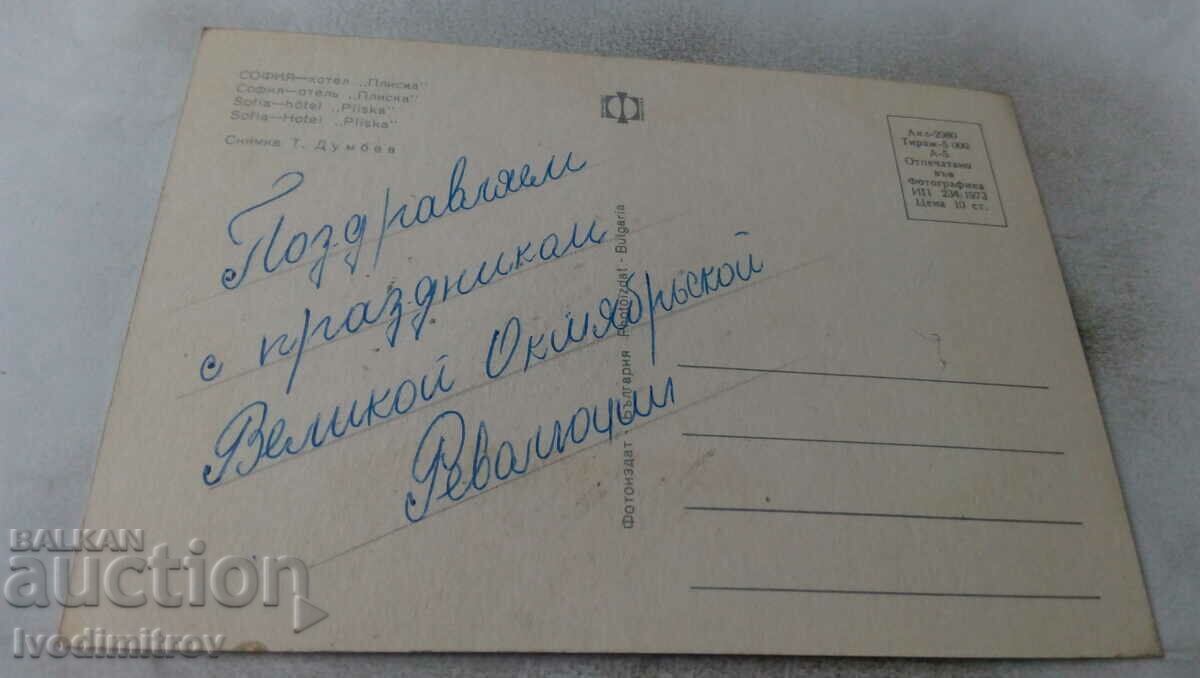 СОФИЯ—хотел „Плиска"
София—отель „Плиска"
Sofia—hôtel „Pliska"
Sofia—Hotel „Pliska"
Снимка Т. Думбев
Поздравляем
с праздником
Великой Октябрьской
Революции
Фотоиздат - България Photoizdat - Bulgaria
Акл-2980
Тираж-5 000
А-5
Отпечатано
във
Фотографика
ИП 234/1973
Цена 10 ст.
BALKAN
auction
Ivodimitrov